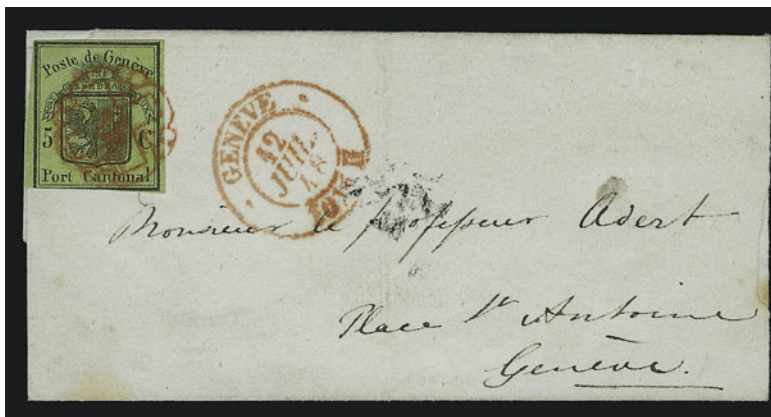 Poste de Genève
POST TENEBRAS LUX
5 C
Port Cantonal
GENÈVE
12
JUIL.
Monsieur le professeur Adert
Place St Antoine
Genève.